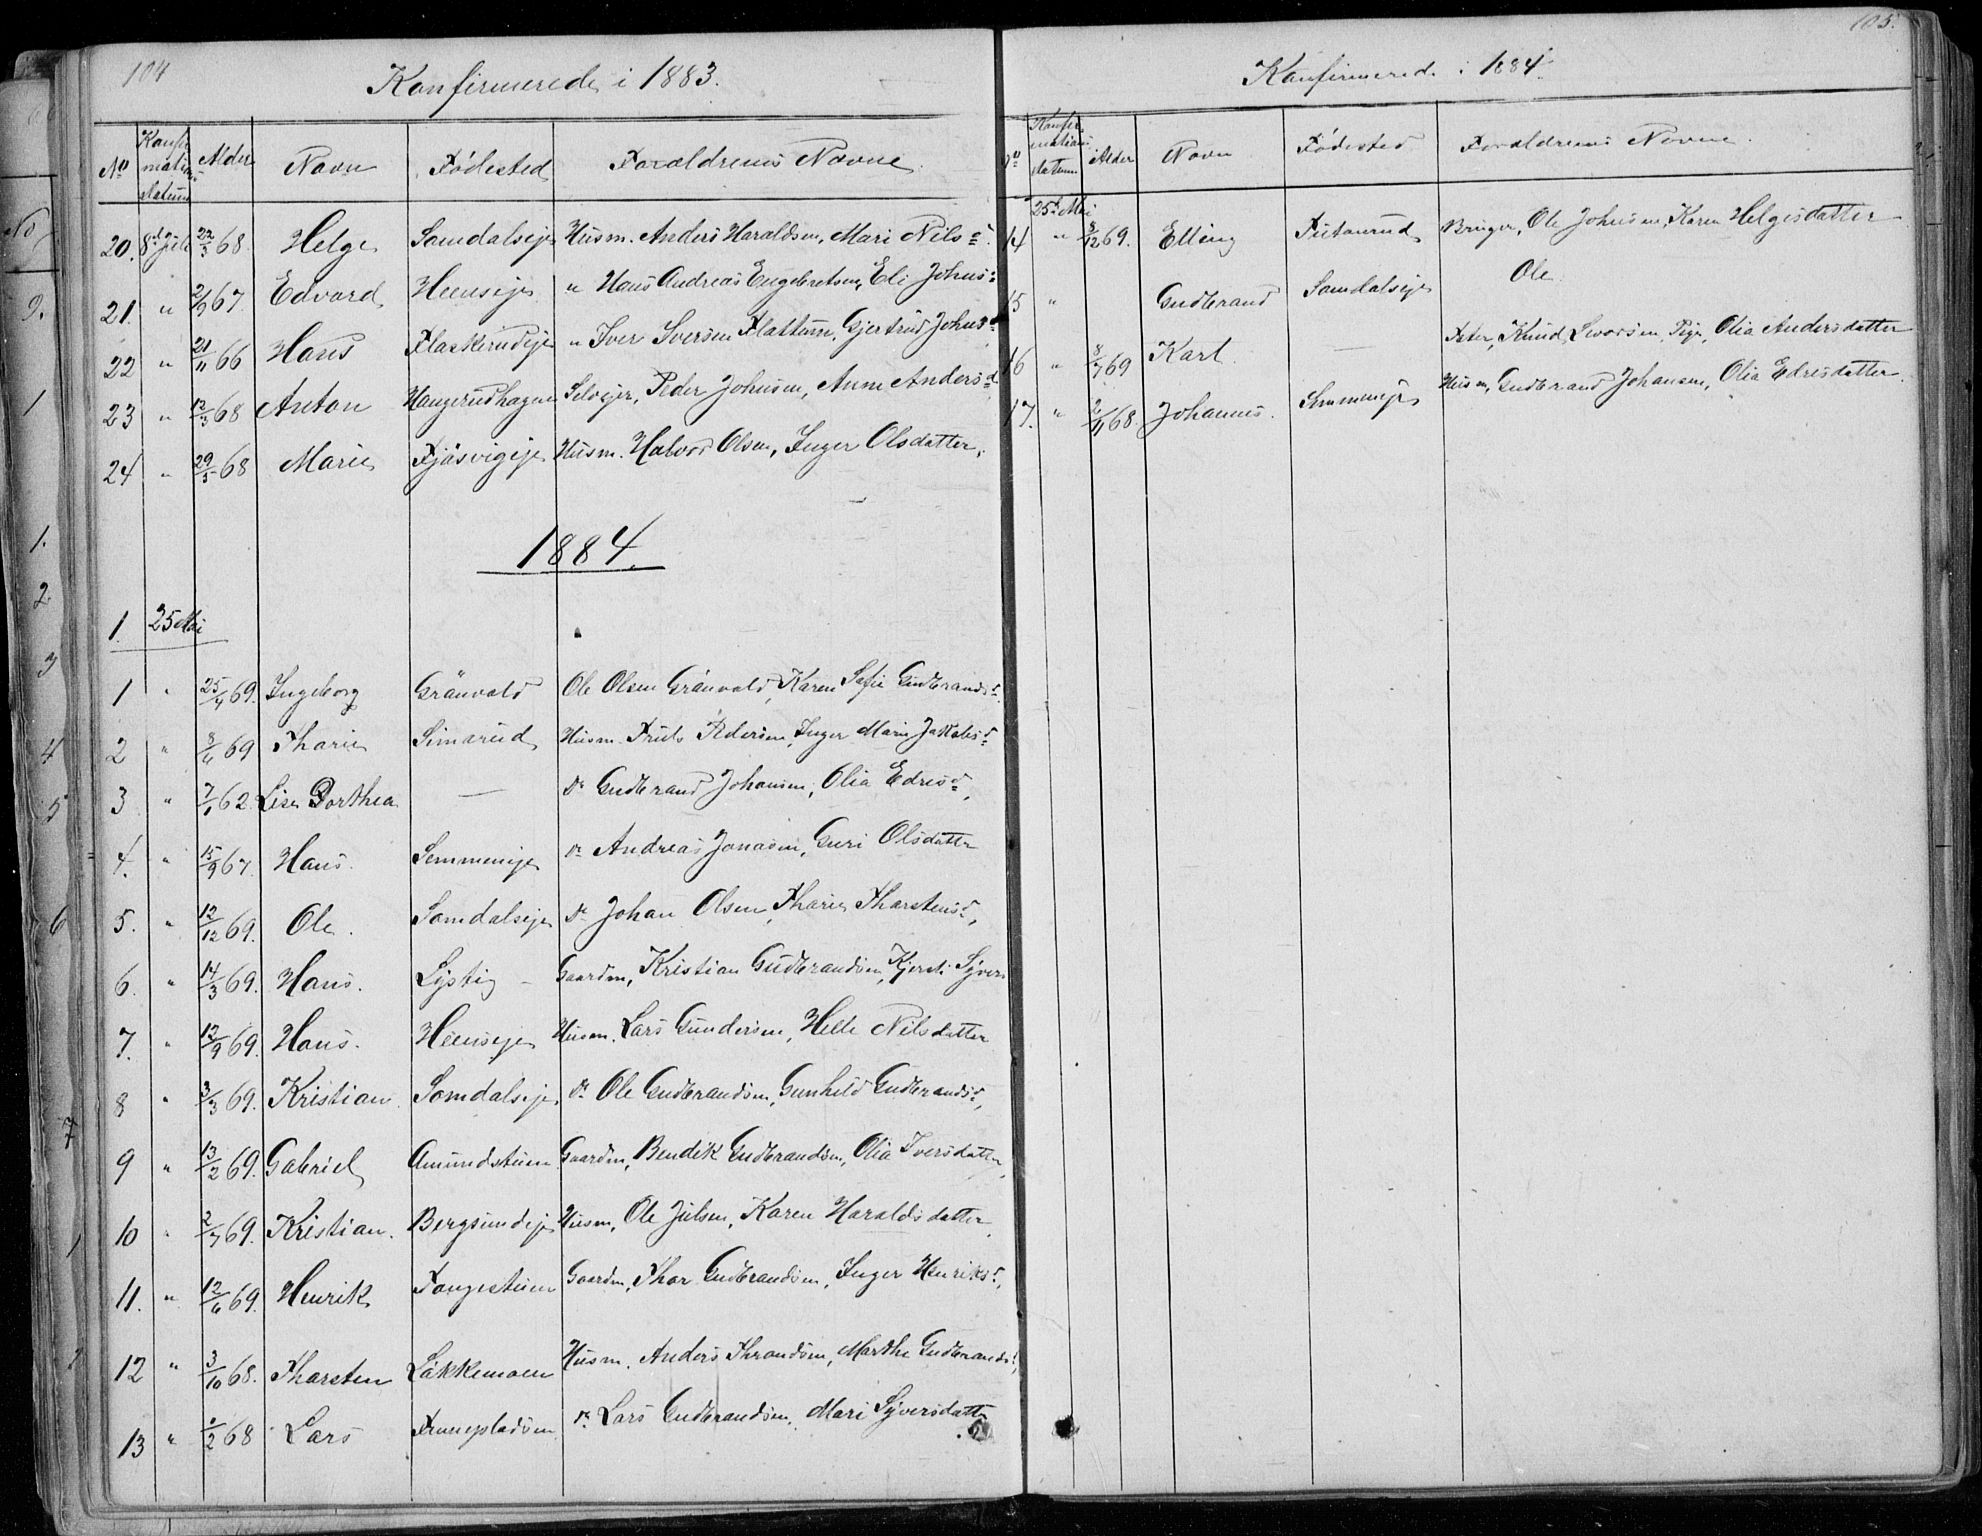 104
Konfirmerede i 1883.
No Konfirmations datum Alder Navn Fødested Forældrenes Navne
20. 8de Juli 22/3 68. Helge Somdalseje Husm. Anders Haraldsen, Mari Nilsd.
21. " 2/9 67. Edvard Heenseje " Hans Andreas Engebretsen, Eli Johnsd.
22 " 21/11 66 Hans Flaskerudeje " Iver Iversen Flattum, Gjertrud Johnsd.
23 " 12/3 68 Anton Haugerudhagen Selvejer, Peder Johnsen, Anne Andersd.
24 " 29/5 68 Marie Fjösvigeje Husm. Halvor Olsen, Inger Olsdatter,
1884.
1. 25 Mai
1 " 25/4 69. Ingeborg Grönvold Ole Olsen Grönvold, Karen Sofie Gudbrandsd.
2 " 8/6 69 Thorie Simarud Husm. Truls Pedersen, Inger Marie Jakobsd.
3 " 7/1 62. Lise Dorthea — Do Gudbrand Johansen, Olia Edresd.,
4. " 15/9 67. Hans. Semmeneje Do Andreas Jonasen, Guri Olsdatter
5. " 12/12 69. Ole. Somdalseje Do Johan Olsen, Thorie Thorstensd.,
6. " 14/3 69. Hans. Lystig - Gaardm, Kristian Gudbrandsen, Kjersti Syvers
7. " 12/9 69. Hans. Heenseje Husm. Lars Gundersen, Helle Nilsdatter
8 " 3/3 69. Kristian. Somdalseje. Do Ole Gudbrandsen, Gunhild Gudbrandsd.,
9 " 13/2 69. Gabriel Amundstuen Gaardm, Bendik Gudbrandsen, Olia Iversdatter,
10 " 2/7 69. Kristian. Bergsundeje Husm, Ole Julsen, Karen Haraldsdatter
11. " 12/6 69. Henrik Tongestuen Gaardm, Thor Gudbrandsen, Inger Henriksd.,
12 " 3/10 68. Thorsten Løkkemoen Husm. Anders Throndsen, Marthe Gudbrandsd.,
13 " /2 68 Lars Do Lars Gudbrandsen, Mari Syversdatter
105.
Konfirmerede i 1884.
No Konfirmations datum Alder Navn Fødested Forældrenes Navne.
25de Mai
14 " 8/12 69. Elling Bruger, Ole Johnsen, Karen Helgesdatter
15 " Gudbrand Somdalseje Ole
16 " 8/7 69 Karl. — Knud Olia Andersdatter
17. " 2/11 68. Johannes. Semmeneje Husm, Gudbrand Johansen, Olia Edresdatter.